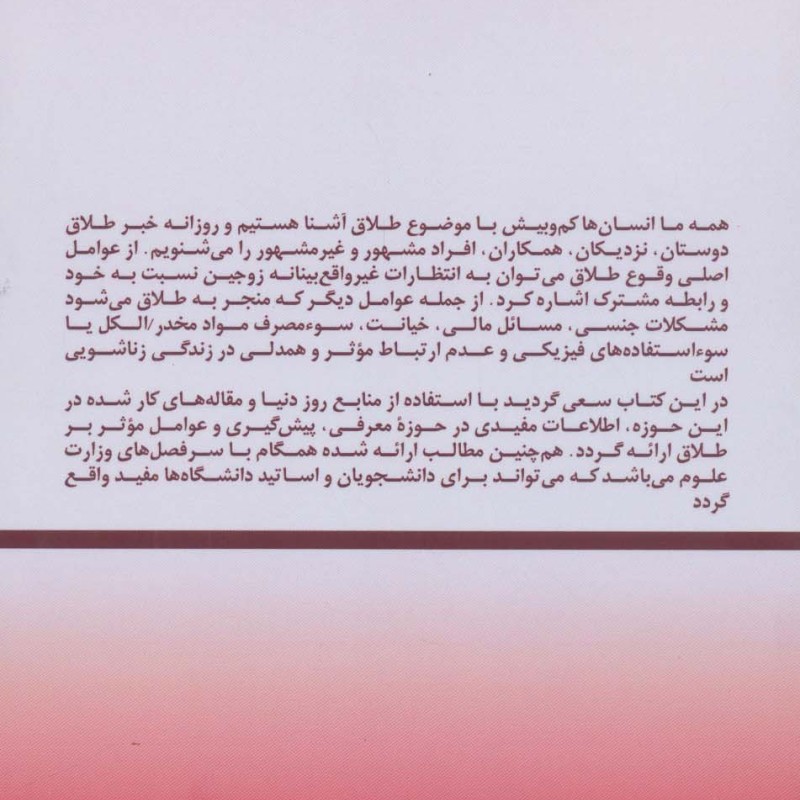 همه ما انسان‌ها کم‌وبیش با موضوع طلاق آشنا هستیم و روزانه خبر طلاق
دوستان، نزدیکان، همکاران، افراد مشهور و غیرمشهور را می‌شنویم. از عوامل
اصلی وقوع طلاق می‌توان به انتظارات غیرواقع‌بینانه زوجین نسبت به خود
و رابطه مشترک اشاره کرد. از جمله عوامل دیگر که منجر به طلاق می‌شود
مشکلات جنسی، مسائل مالی، خیانت، سوءمصرف مواد مخدر/الکل یا
سوءاستفاده‌های فیزیکی و عدم ارتباط مؤثر و همدلی در زندگی زناشویی
است
در این کتاب سعی گردید با استفاده از منابع روز دنیا و مقاله‌های کار شده در
این حوزه، اطلاعات مفیدی در حوزهٔ معرفی، پیش‌گیری و عوامل مؤثر بر
طلاق ارائه گردد. هم‌چنین مطالب ارائه شده همگام با سرفصل‌های وزارت
علوم می‌باشد که می‌تواند برای دانشجویان و اساتید دانشگاه‌ها مفید واقع
گردد